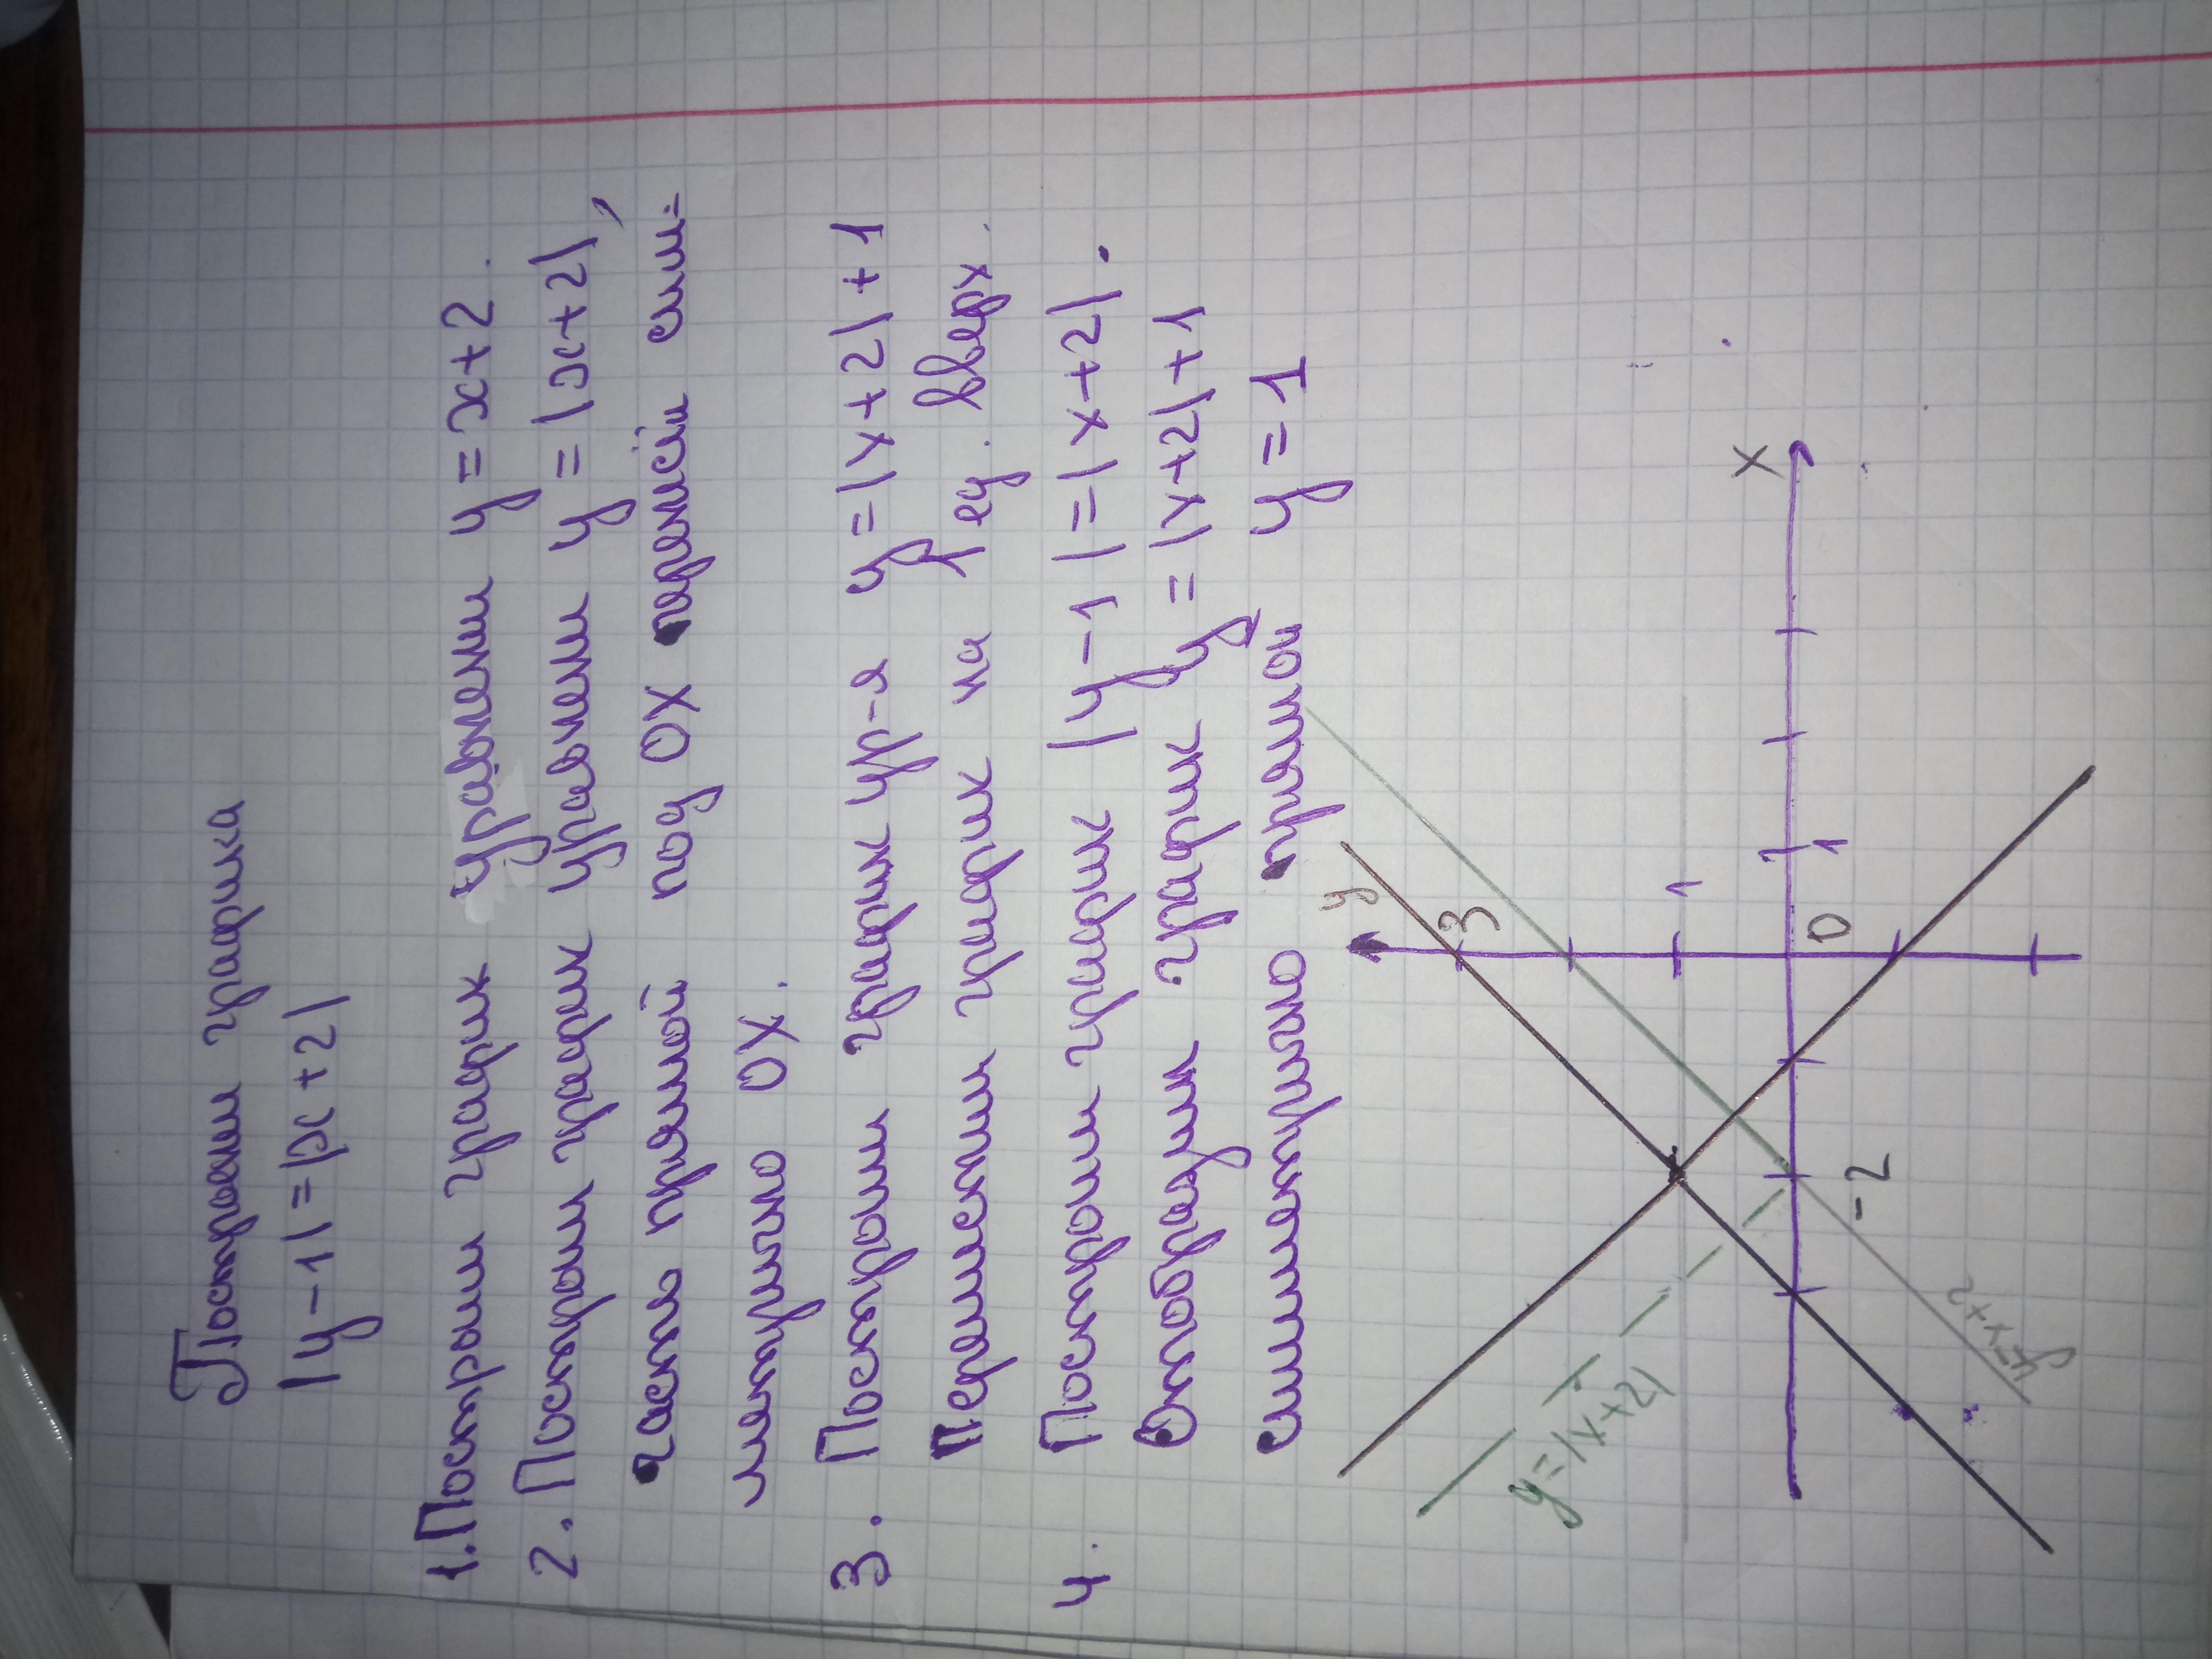 Построение графика
|y-1|=|x+2|
1. Построим график уравнения y=x+2.
2. Построим график уравнения y=|x+2|,
часть прямой под OX перенесём сим=
метрично OX.
3. Построим график ур-я y=|x+2|+1
Переместим график на 1 ед. вверх.
4. Построим график |y-1|=|x+2|.
Отобразим график y=|x+2|+1
симметрично прямой y=1
y
3
1
x
0
1
-2
y=|x+2|
y=x+2